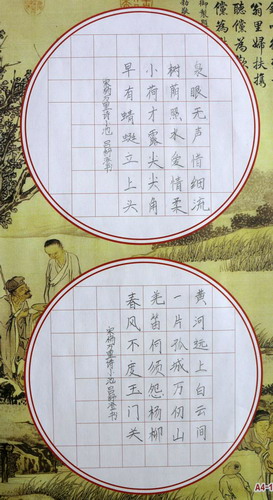 翁里婦扶
泉眼无声惜细流
树荫照水爱晴柔
小荷才露尖尖角
早有蜻蜓立上头
宋杨万里诗小池
黄河远上白云间
一片孤城万仞山
羌笛何须怨杨柳
春风不度玉门关
宋杨万里诗小池
A4-1